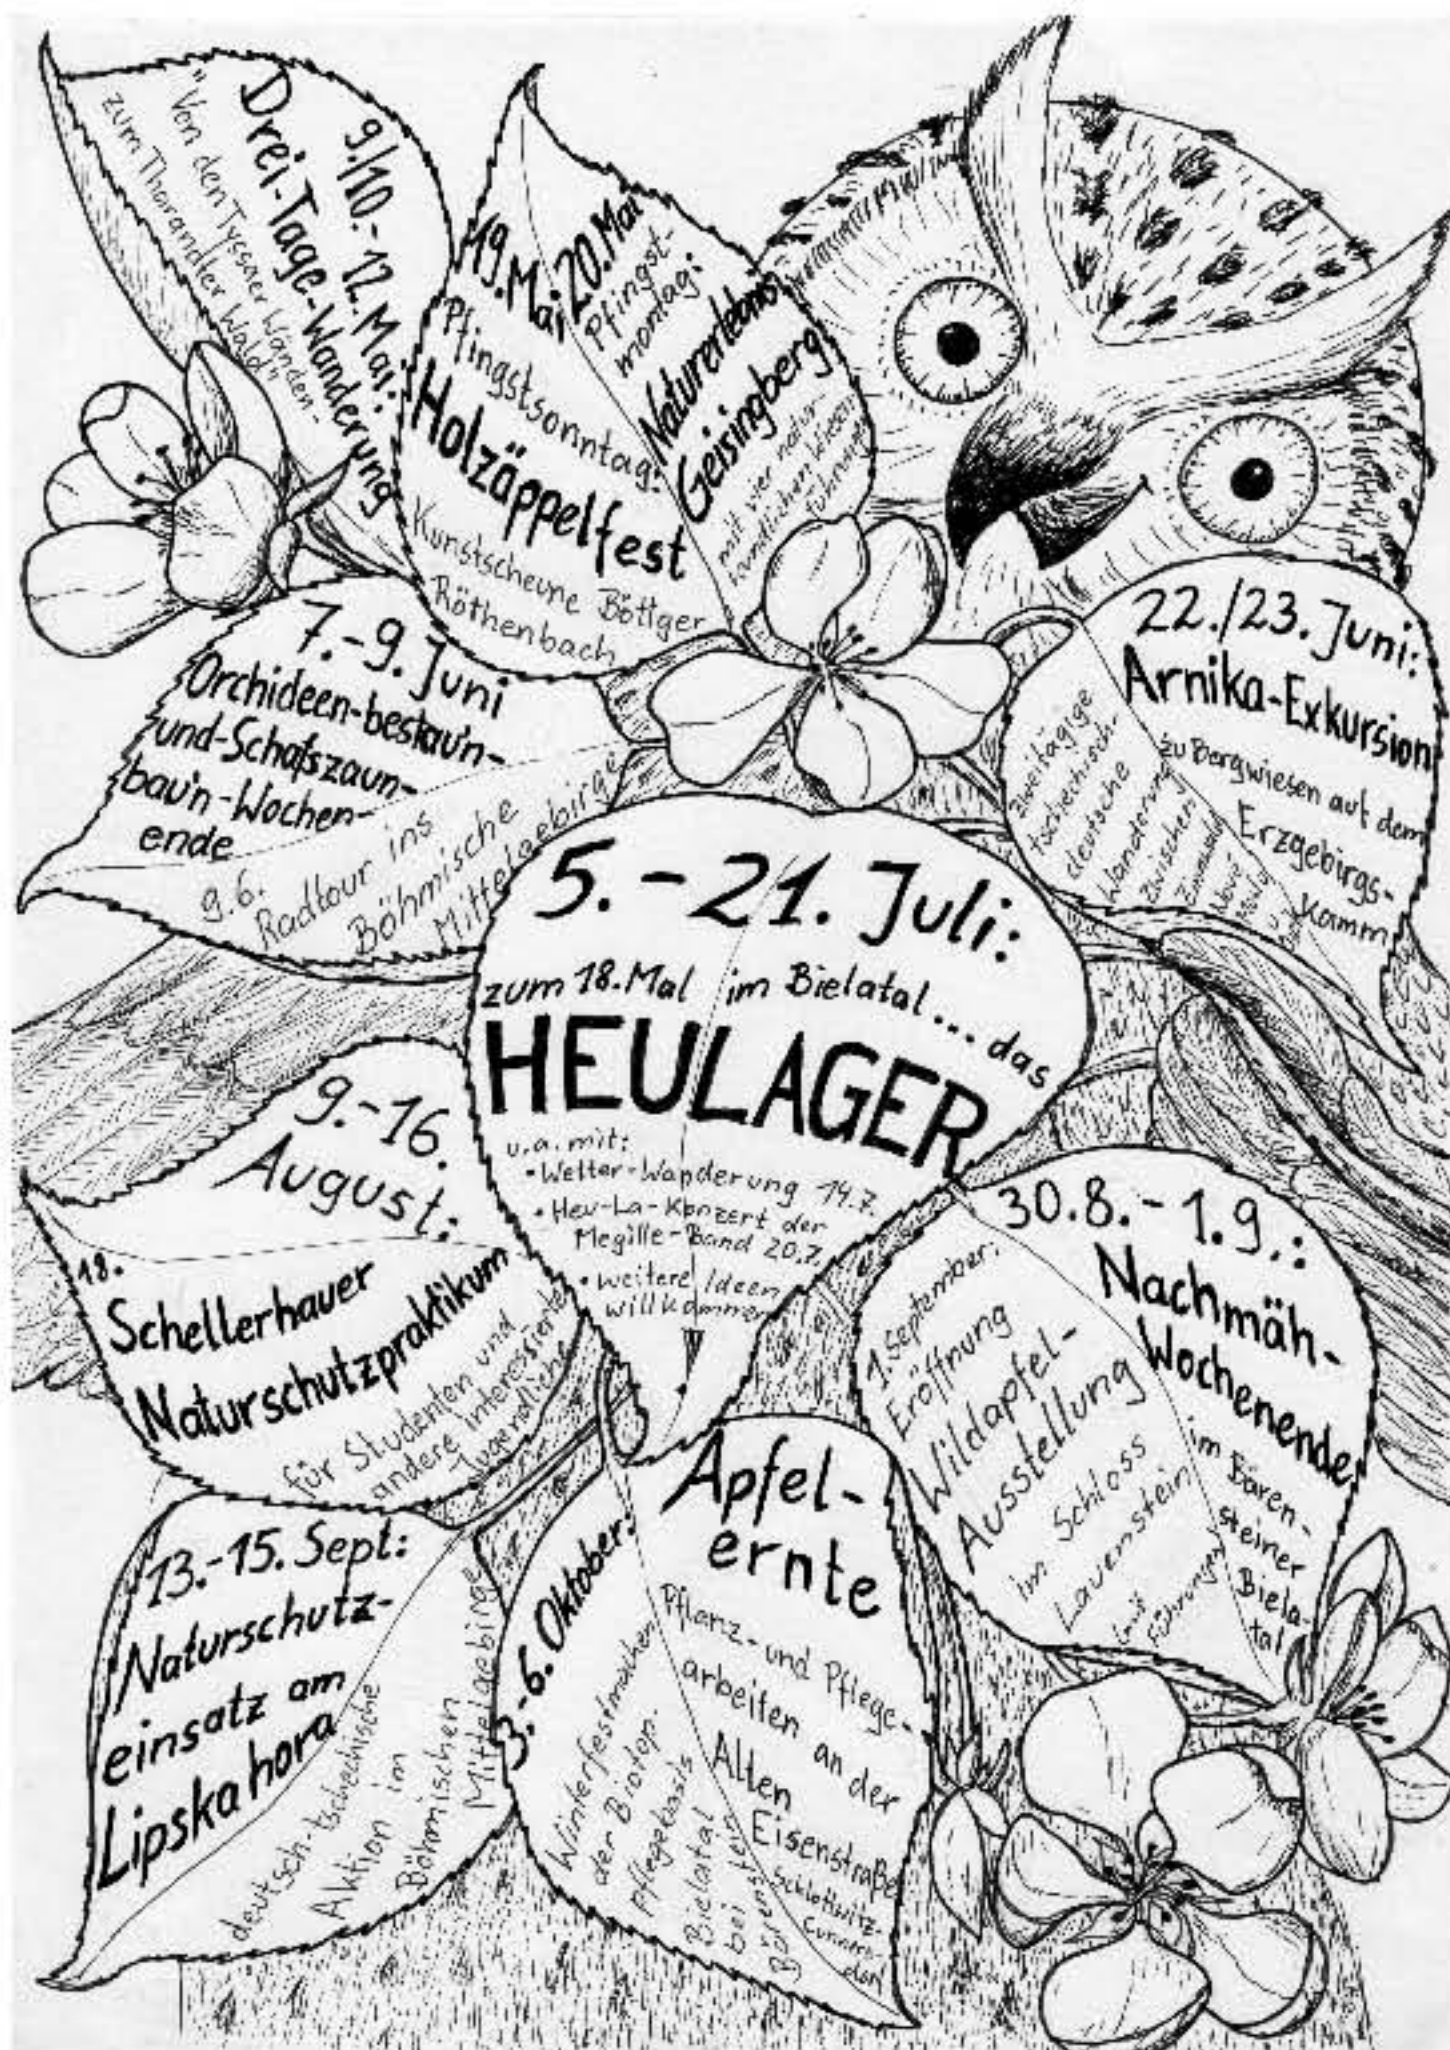 9./10.-12. Mai:
Drei-Tage-Wanderung
"Von den Tyssaer Wänden-
zum Tharandter Wald"
19. Mai
Pfingstsonntag:
Holzäppelfest
Kunstscheune Böttger
Röthenbach
20. Mai
Pfingst-
montag:
Naturerlebnis
Geisingberg
mit vier natur-
kundlichen Wiesen
führungen
7.-9. Juni
Orchideen-bestaun-
und-Schafszaun-
bau'n-Wochen-
ende
9.6.
Radtour ins
Böhmische
Mittelgebirge
22./23. Juni:
Arnika-Exkursion
zu Bergwiesen auf dem
Erzgebirgs-
kamm
zweitägige
tschechisch-
deutsche
Wanderung
zwischen
Zinnwald
5.-21. Juli:
zum 18. Mal im Bielatal... das
HEULAGER
u.a. mit:
• Wetter-Wanderung 14.7.
• Heu-La-Konzert der
Megille-Band 20.7.
• weitere Ideen
willkommen
9.-16.
August:
18.
Schellerhauer
Naturschutzpraktikum
für Studenten und
andere interessierte
Jugendliche
30.8.-1.9.:
Nachmäh-
Wochenende
im Bären-
steiner
Biela-
tal
1. September:
Eröffnung
Wildapfel-
Ausstellung
im Schloss
Lauenstein
Führungen
13.-15. Sept:
Naturschutz-
einsatz am
Lipska hora
deutsch-tschechische
Aktion im
Böhmischen
Mittelgebirge
3.-6. Oktober:
Apfel-
ernte
Pflanz- und Pflege-
arbeiten an der
Alten
Eisenstraße
Schlottwitz-
Cunners-
dorf
Winterfestmachen
der Biotop-
pflegebasis
Bielatal
bei
Bärenstein